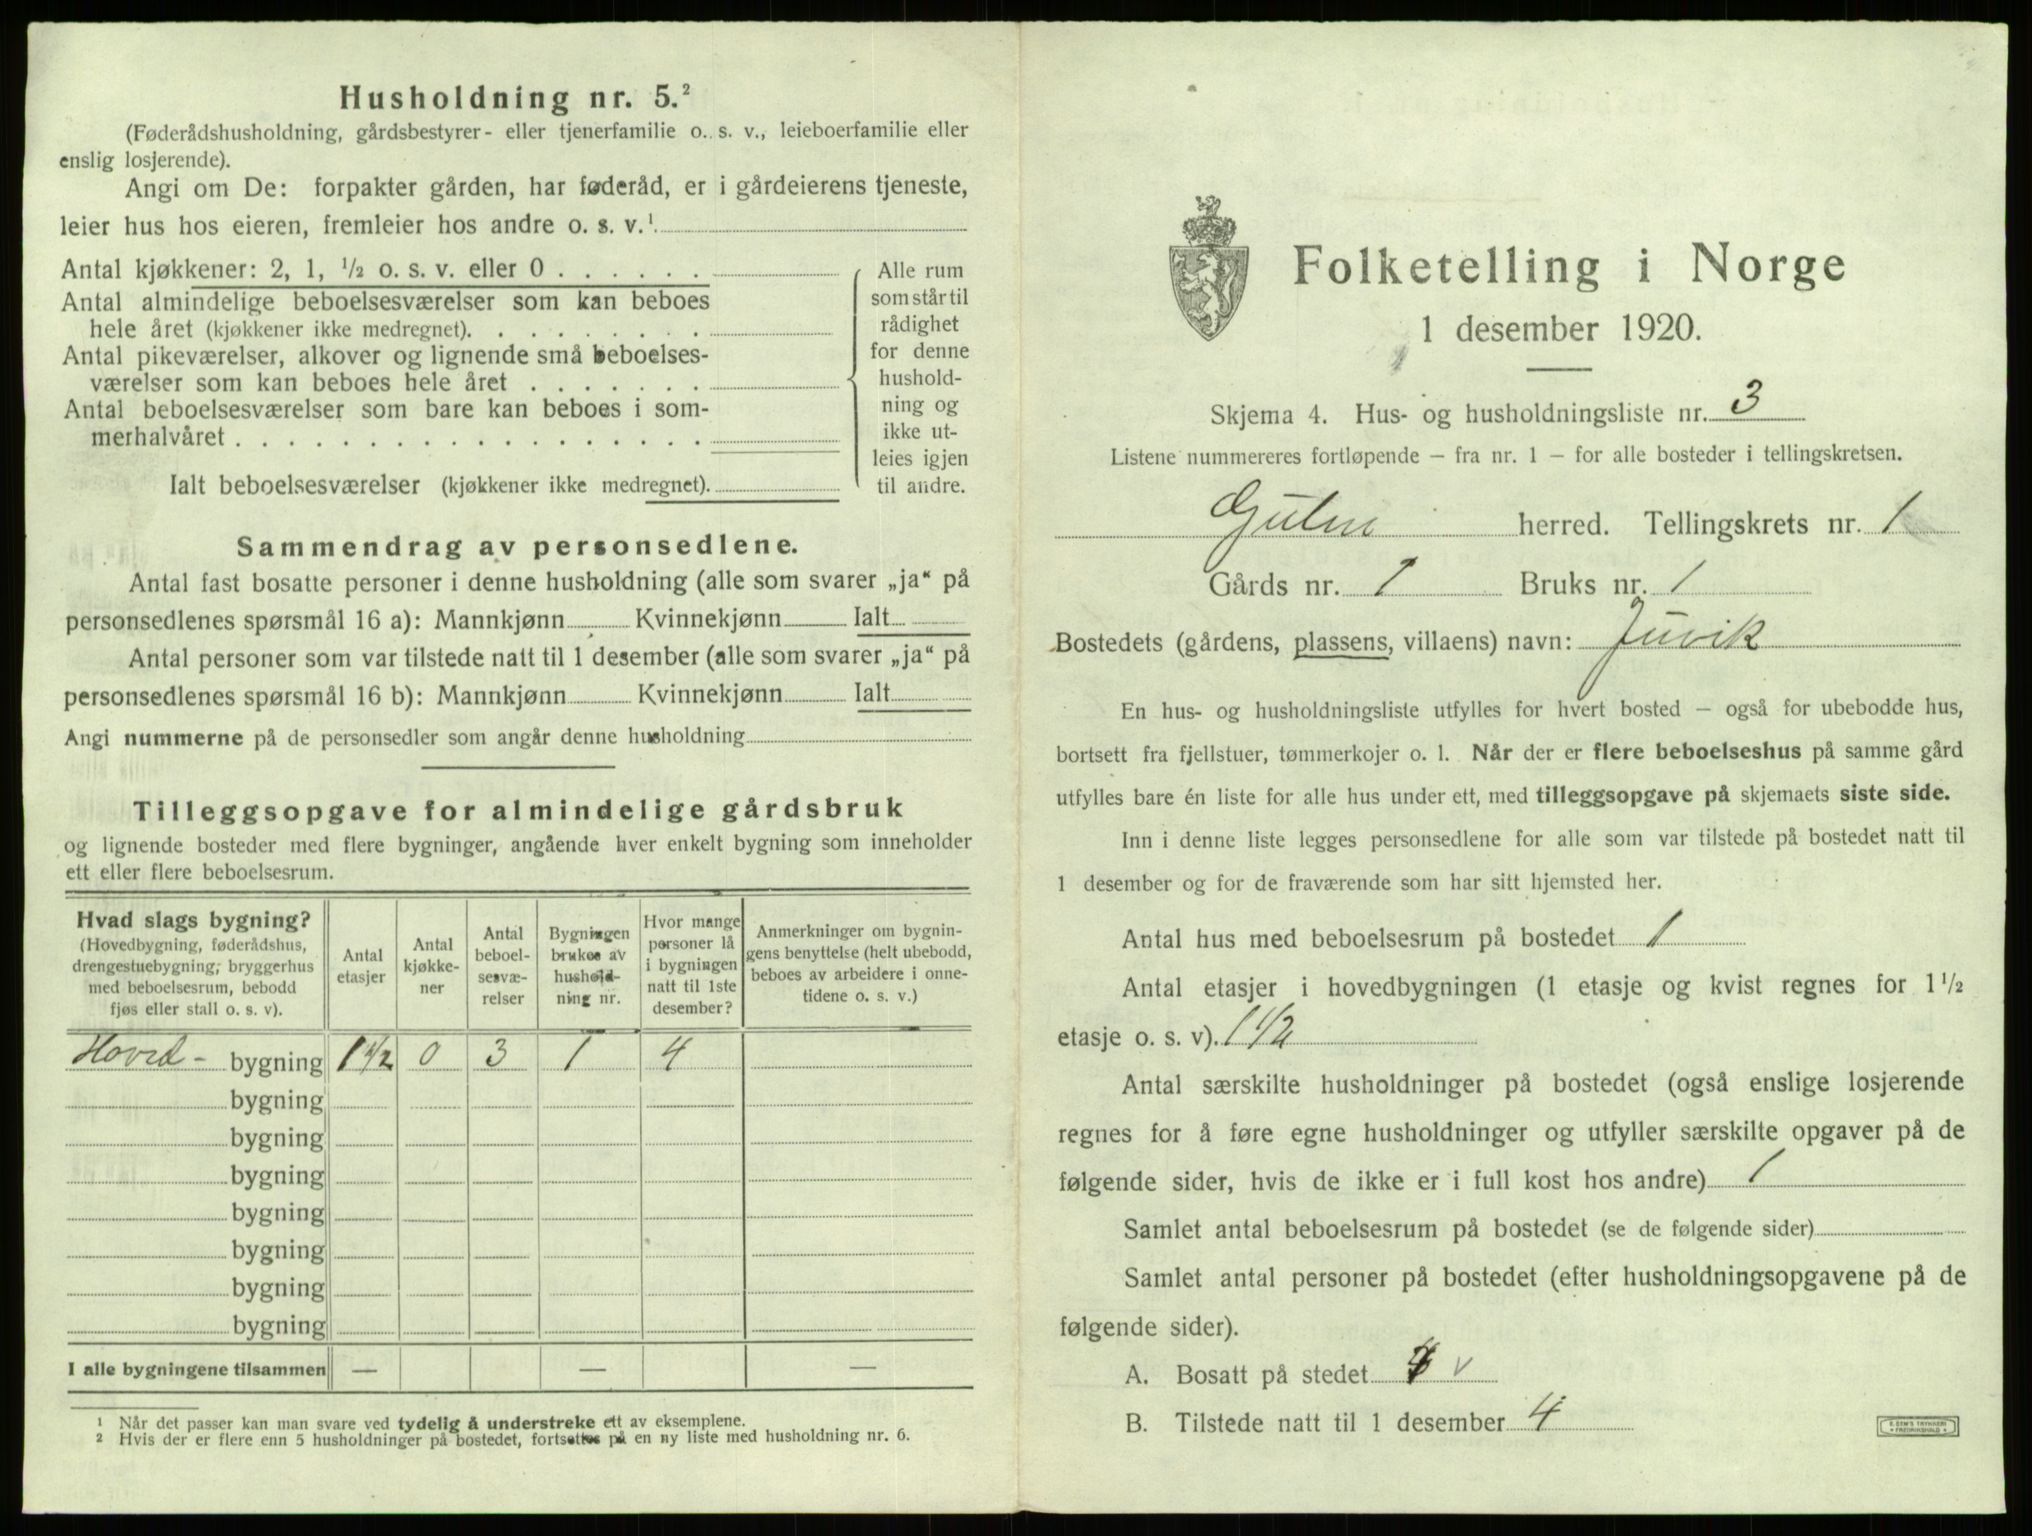 Husholdning nr. 5.²
(Føderådshusholdning, gårdsbestyrer- eller tjenerfamilie o. s. v., leieboerfamilie eller
enslig losjerende).
Angi om De: forpakter gården, har føderåd, er i gårdeierens tjeneste,
leier hus hos eieren, fremleier hos andre o. s. v.¹
Antal kjøkkener: 2, 1, ½ o. s. v. eller 0 . . . . . .
Antal almindelige beboelsesværelser som kan beboes
hele året (kjøkkener ikke medregnet). . . . . . . . .
Antal pikeværelser, alkover og lignende små beboelses-
værelser som kan beboes hele året . . . . . . .
Antal beboelsesværelser som bare kan beboes i som-
merhalvåret . . . . . . . . . . . . . . . . . .
Ialt beboelsesværelser (kjøkkener ikke medregnet).
Alle rum
som står til
rådighet
for denne
hushold-
ning og
ikke ut-
leies igjen
til andre.
Sammendrag av personsedlene.
Antal fast bosatte personer i denne husholdning (alle som svarer „ja“ på
personsedlenes spørsmål 16 a): Mannkjønn Kvinnekjønn Ialt
Antal personer som var tilstede natt til 1 desember (alle som svarer „ja“ på
personsedlenes spørsmål 16 b): Mannkjønn Kvinnekjønn Ialt
Angi nummerne på de personsedler som angår denne husholdning
Tilleggsopgave for almindelige gårdsbruk
og lignende bosteder med flere bygninger, angående hver enkelt bygning som inneholder
ett eller flere beboelsesrum.
Hvad slags bygning?
(Hovedbygning, føderådshus,
drengestuebygning; bryggerhus
med beboelsesrum, bebodd
fjøs eller stall o. s. v).
Antal
etasjer
Antal
kjøkke-
ner
Antal
beboel-
sesvæ-
relser
Bygningen
brukes av
hushold-
ning nr.
Hvor mange
personer lå
i bygningen
natt til 1ste
desember?
Anmerkninger om bygnin-
gens benyttelse (helt ubebodd,
beboes av arbeidere i onne-
tidene o. s. v.)
Hoved- bygning 1 1/2 0 3 1 4
bygning
bygning
bygning
bygning
bygning
bygning
bygning
I alle bygningene tilsammen — — —
¹ Når det passer kan man svare ved tydelig å understreke ett av eksemplene.
² Hvis der er flere enn 5 husholdninger på bostedet, fortsettes på en ny liste med husholdning nr. 6.
Folketelling i Norge
1 desember 1920.
Skjema 4. Hus- og husholdningsliste nr. 3
Listene nummereres fortløpende – fra nr. 1 – for alle bosteder i tellingskretsen.
Gulen herred. Tellingskrets nr. 1
Gårds nr. 1 Bruks nr. 1
Bostedets (gårdens, plassens, villaens) navn: Juvik
En hus- og husholdningsliste utfylles for hvert bosted – også for ubebodde hus,
bortsett fra fjellstuer, tømmerkojer o. l. Når der er flere beboelseshus på samme gård
utfylles bare én liste for alle hus under ett, med tilleggsopgave på skjemaets siste side.
Inn i denne liste legges personsedlene for alle som var tilstede på bostedet natt til
1 desember og for de fraværende som har sitt hjemsted her.
Antal hus med beboelsesrum på bostedet 1
Antal etasjer i hovedbygningen (1 etasje og kvist regnes for 1½
etasje o. s. v). 1 1/2
Antal særskilte husholdninger på bostedet (også enslige losjerende
regnes for å føre egne husholdninger og utfyller særskilte opgaver på de
følgende sider, hvis de ikke er i full kost hos andre) 1
Samlet antal beboelsesrum på bostedet (se de følgende sider)
Samlet antal personer på bostedet (efter husholdningsopgavene på de
følgende sider).
A. Bosatt på stedet v
B. Tilstede natt til 1 desember 4